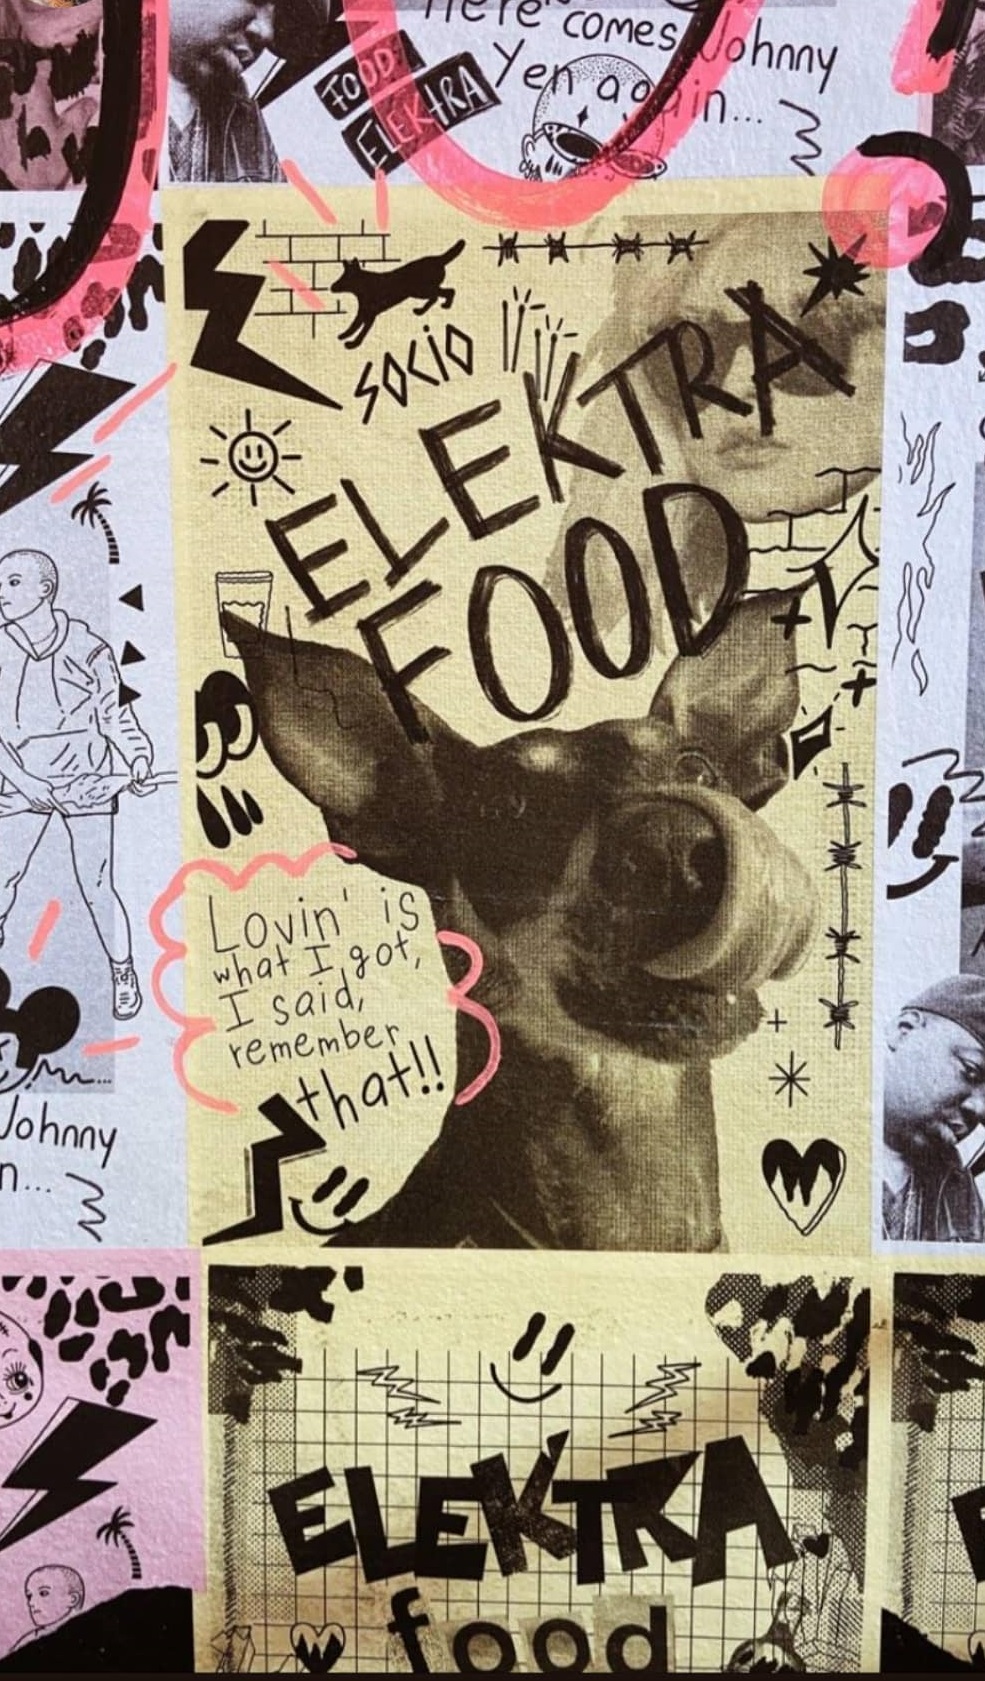 Here comes Johnny
Yen again...
FOOD
ELEKTRA
SOCIO
ELEKTRA
FOOD
Lovin' is
what I got,
I said,
remember
that!!
Johnny
n...
ELEKTRA
food